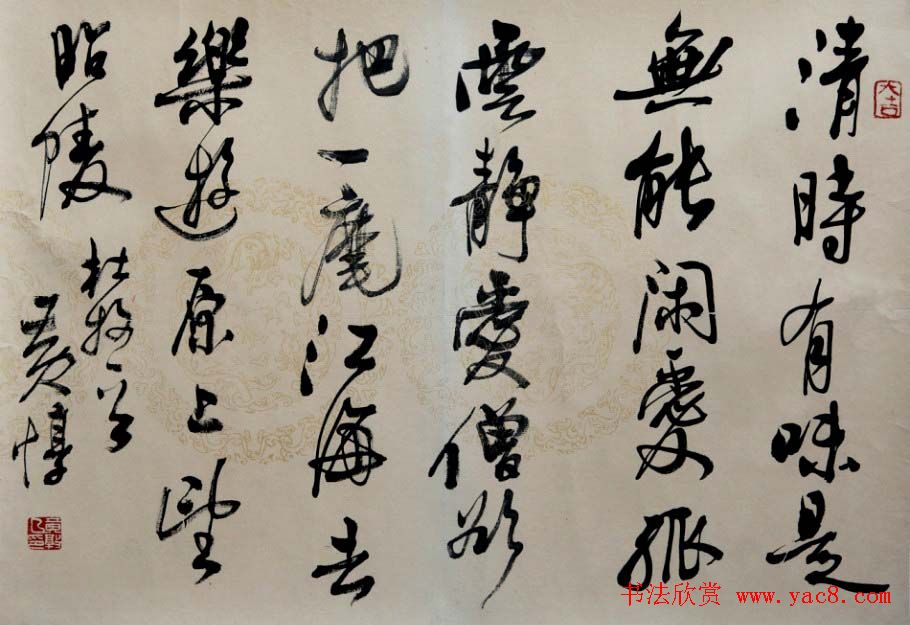 清時有味是
無能閑愛孤
雲靜愛僧欲
把一麾江海去
樂遊原上望
昭陵
杜牧
黄惇
书法欣赏 www.yac8.com